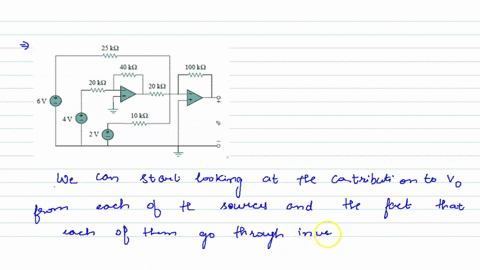 ⇒
25 kΩ
40 kΩ
100 kΩ
20 kΩ
20 kΩ
6 V
10 kΩ
4 V
2 V
We can start looking at the contribution to Vo
from each of the sources and the fact that
each of them go through inve